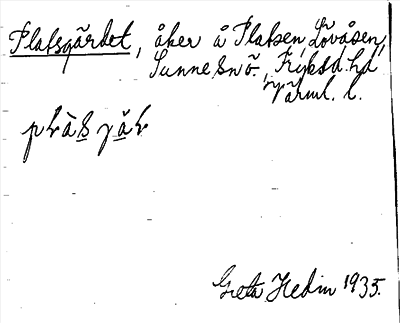 Platsgärdet, åker å Platsen, Lövåsen,
Sunne sn ö., Fryksd. hd
Värml. l.
Greta Hedin 1935.